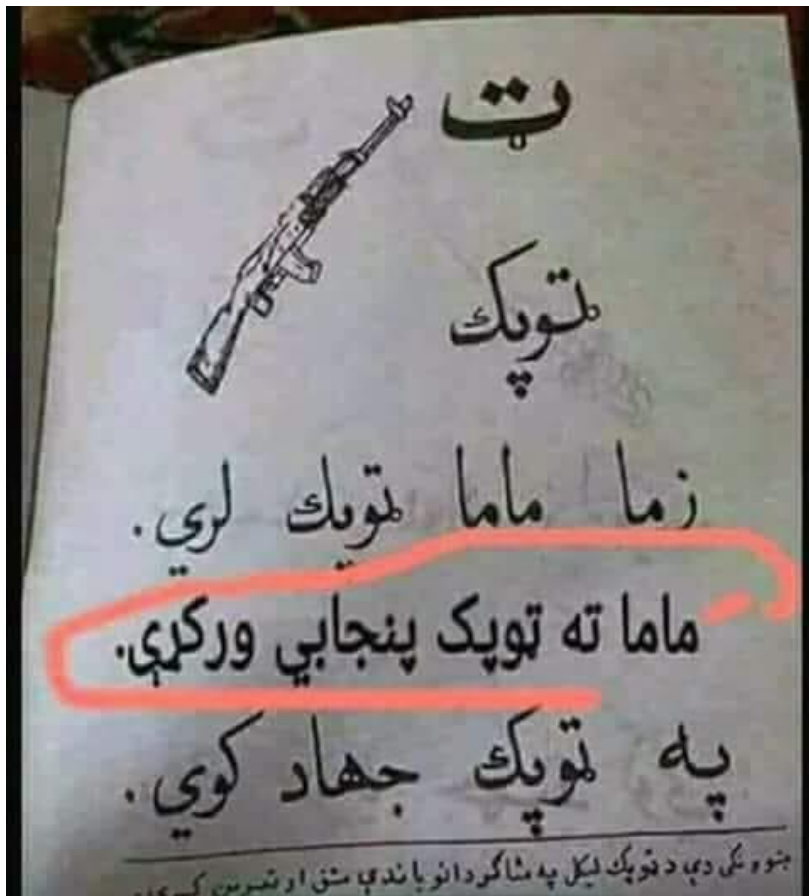 ټ
ټوپك
زما ماما ټوپك لري.
ماما ته ټوپک پنجابي ورکړې.
په ټوپك جهاد كوي.
ښوونكی دې د ټوپك ليكل په شاګردانو باندې مشق او تمرين